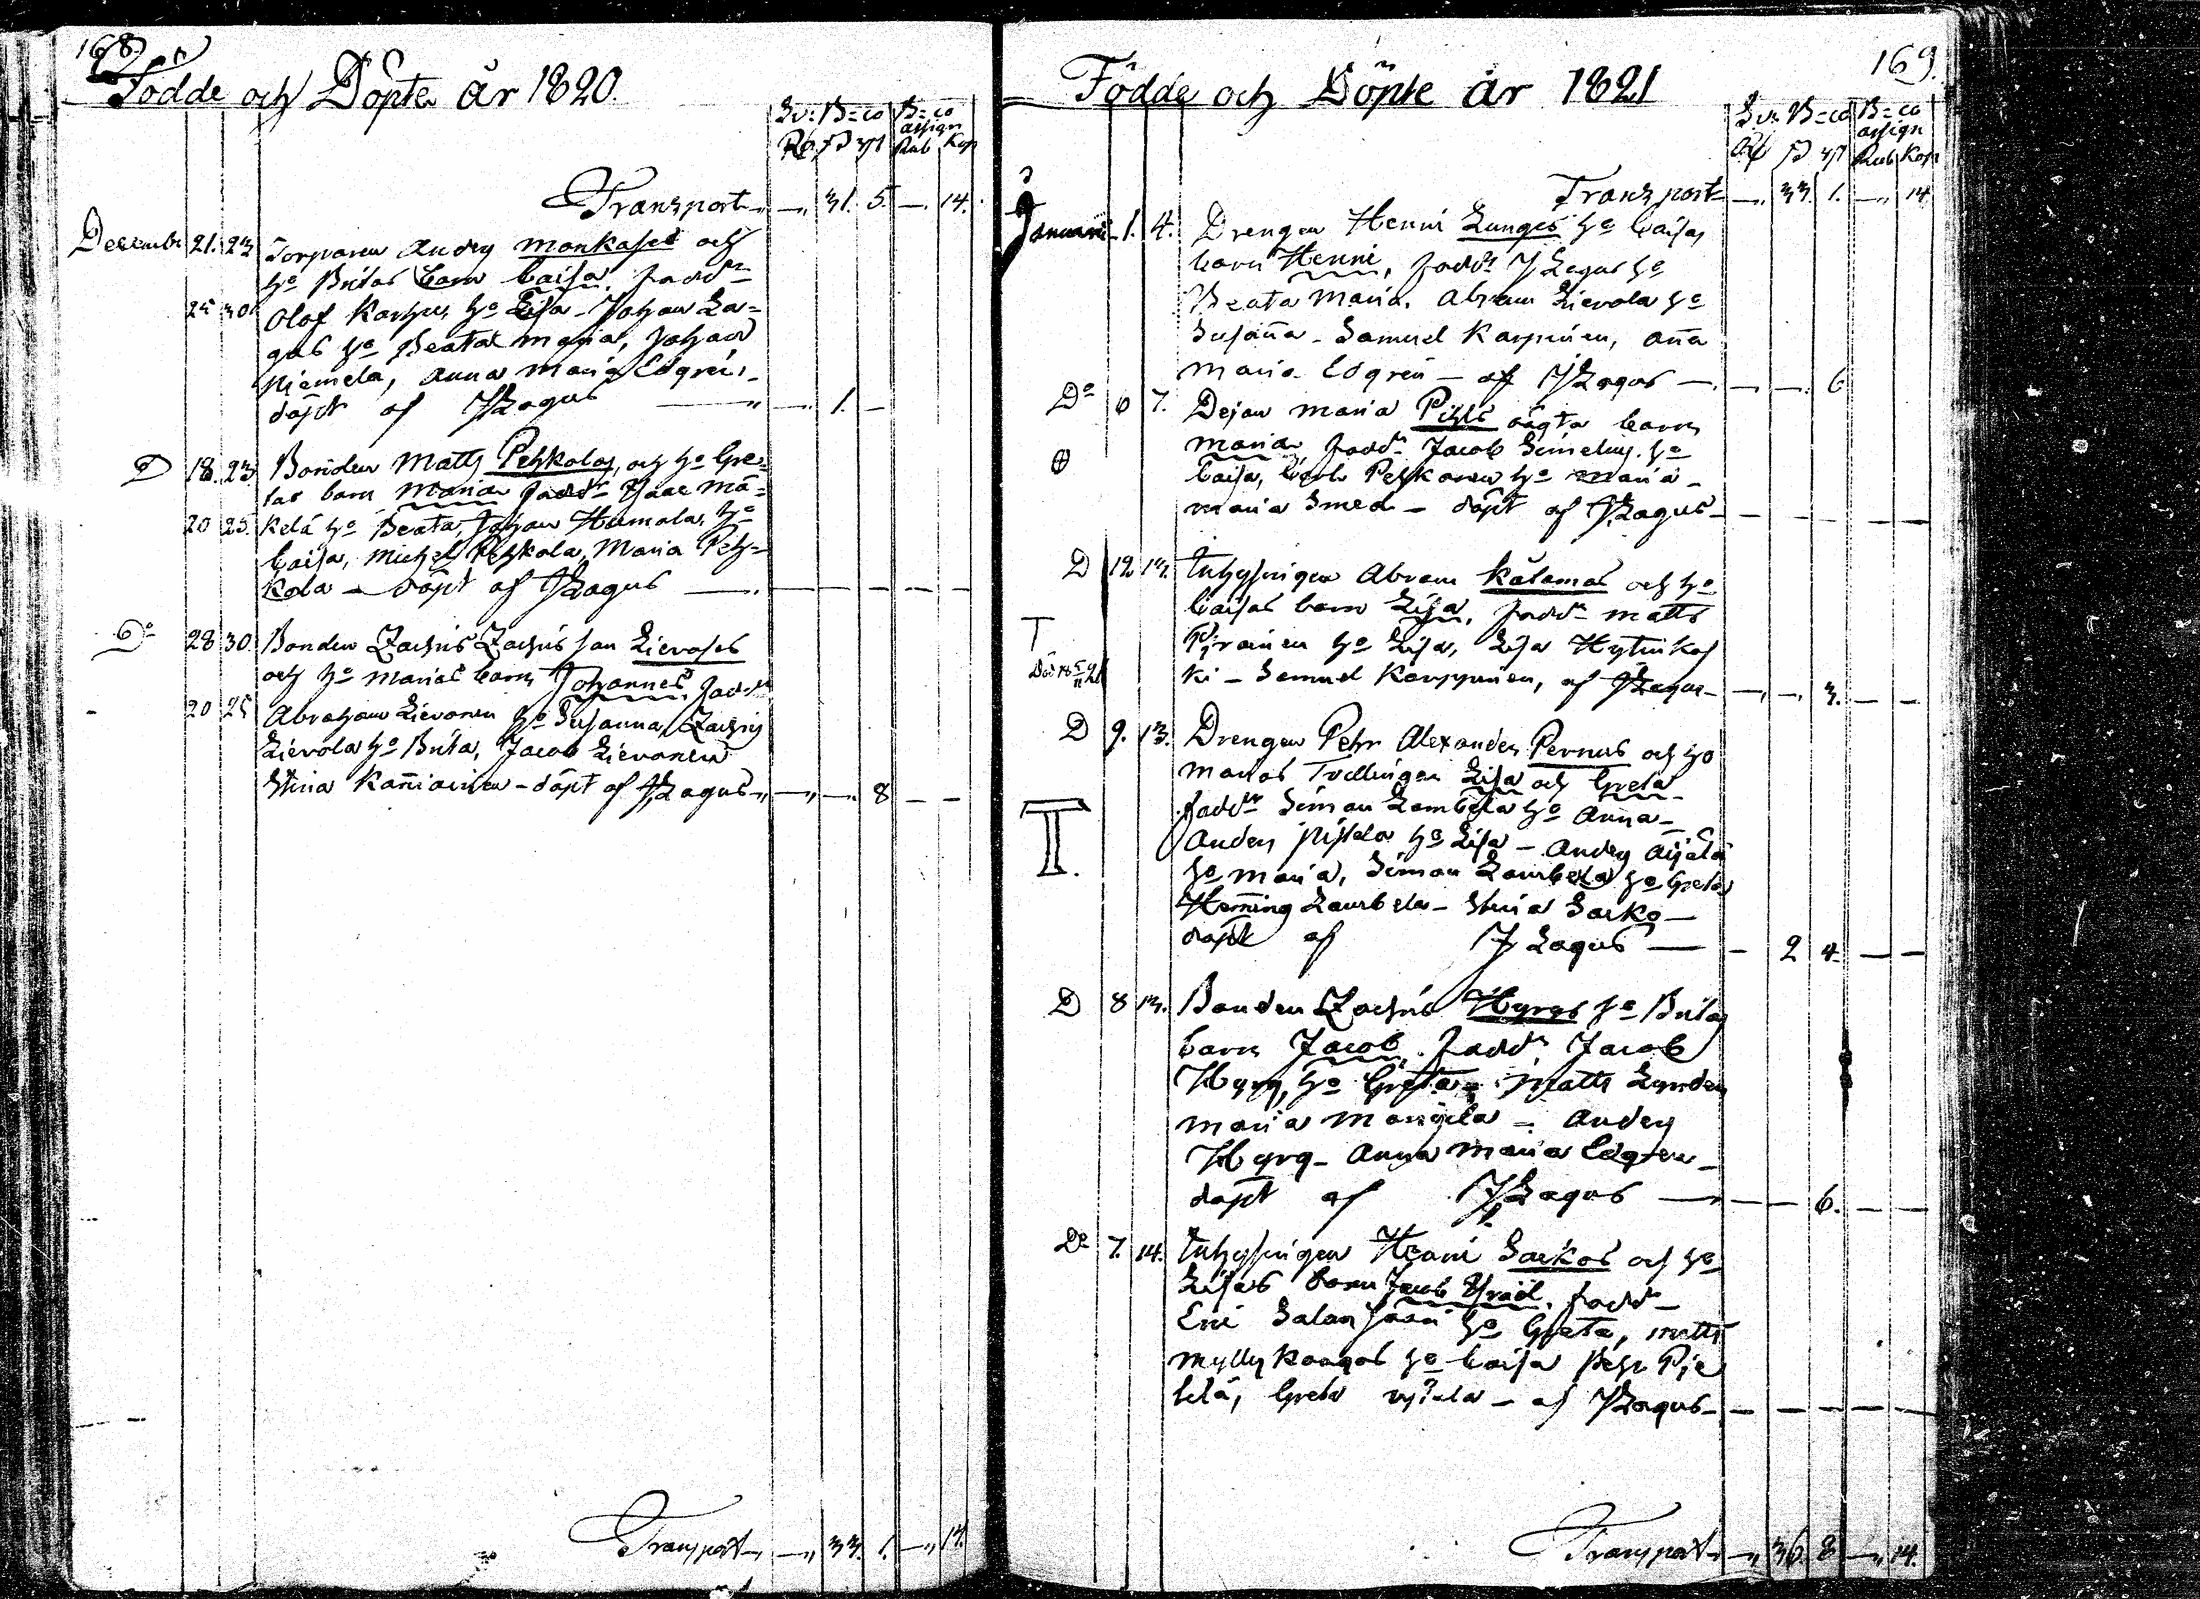 168.
Födde och Döpte år 1820.
Sv: B=co B=co assign
Rd ß rst Rub Kop
Transport — 31. 5. — 14.
Decembr 21. 23 Torparen Anders Monkases och
hö Britas barn Caisa, fadd:
25 30 Olof Karhu, hö Lisa - Johan La=
gus hö Beata Maria, Johan
Niemelä, Anna Maria Edgren,
döpt af J Lagus — — 1. —
D 18. 23. Bonden Matts Pehkolas, och hö Gre=
tas barn Maria fadd: Isaac Mä=
20 25. kelä hö Beata, Johan Humala, hö
Caisa, Michel Pehkola, Maria Peh=
kola — döpt af J Lagus — — — — — —
Do 28 30. Bonden Zachris Zachris son Lievoses
och hö Marias barn Johannes, fadd:
20 25 Abraham Lievonen hö Susanna, Zachris
Lievola hö Brita, Jacob Lievonen
Stina Kaniainen - döpt af J Lagus — — 8 — —
Transport — 33. 1. — 14.
169.
Födde och Döpte år 1821
Sv: B=co B=co assign
Rd ß rst Rub Kop
Transport — 33. 1. — 14
Januarii 1. 4. Drengen Henric Lunges hö Caisas
barn Henric, fadd: J Lagus hö
Beata Maria, Abram Lievola hö
Susanna - Samuel Karpinen, Anna
Maria Edgren — af J Lagus — — — 6
Do 6 7. Dejan Maria Pihls oägta barn
Maria, fadd: Jacob Simelius hö
Caisa, Carl Pehkonen hö Maria -
Maria Smed — döpt af J Lagus — — — — —
D 12 13. Inhysingen Abram Kälamas och hö
Caisas barn Lisa, fadd: Matts
T hö Lisa, Lisa Hytinkos
ki - Samuel Karppinen, af J Lagus — — 3. — —
D 9. 13. Drengen Pehr Alexander Pernus och hö
Marias Tvillingar Lisa och Greta
fadd: Simon Lambela hö Anna -
T. Anders hö Lisa - Anders Äijälä
hö Maria, Simon Lambela hö Greta
Henning Lambela - Stina Sarko —
döpt af J Lagus — — 2 4. — —
D 8 13. Bonden Zachris Hyrys hö Britas
barn Jacob, fadd: Jacob
Hyry, hö Greta - Matts Lynden
Maria Mangela - Anders
Hyry - Anna Maria Edgren -
döpt af J Lagus — — — 6. — —
Do 7. 14. Inhysingen Henric Sarkos och hö
Lisas barn Jacob Israel, fadd:
Eric hö Greta, Matts
Myllykangas hö Caisa Pehr Pie
telä, Greta - af J Lagus — — — — —
Transport — 36. 8 — 14.